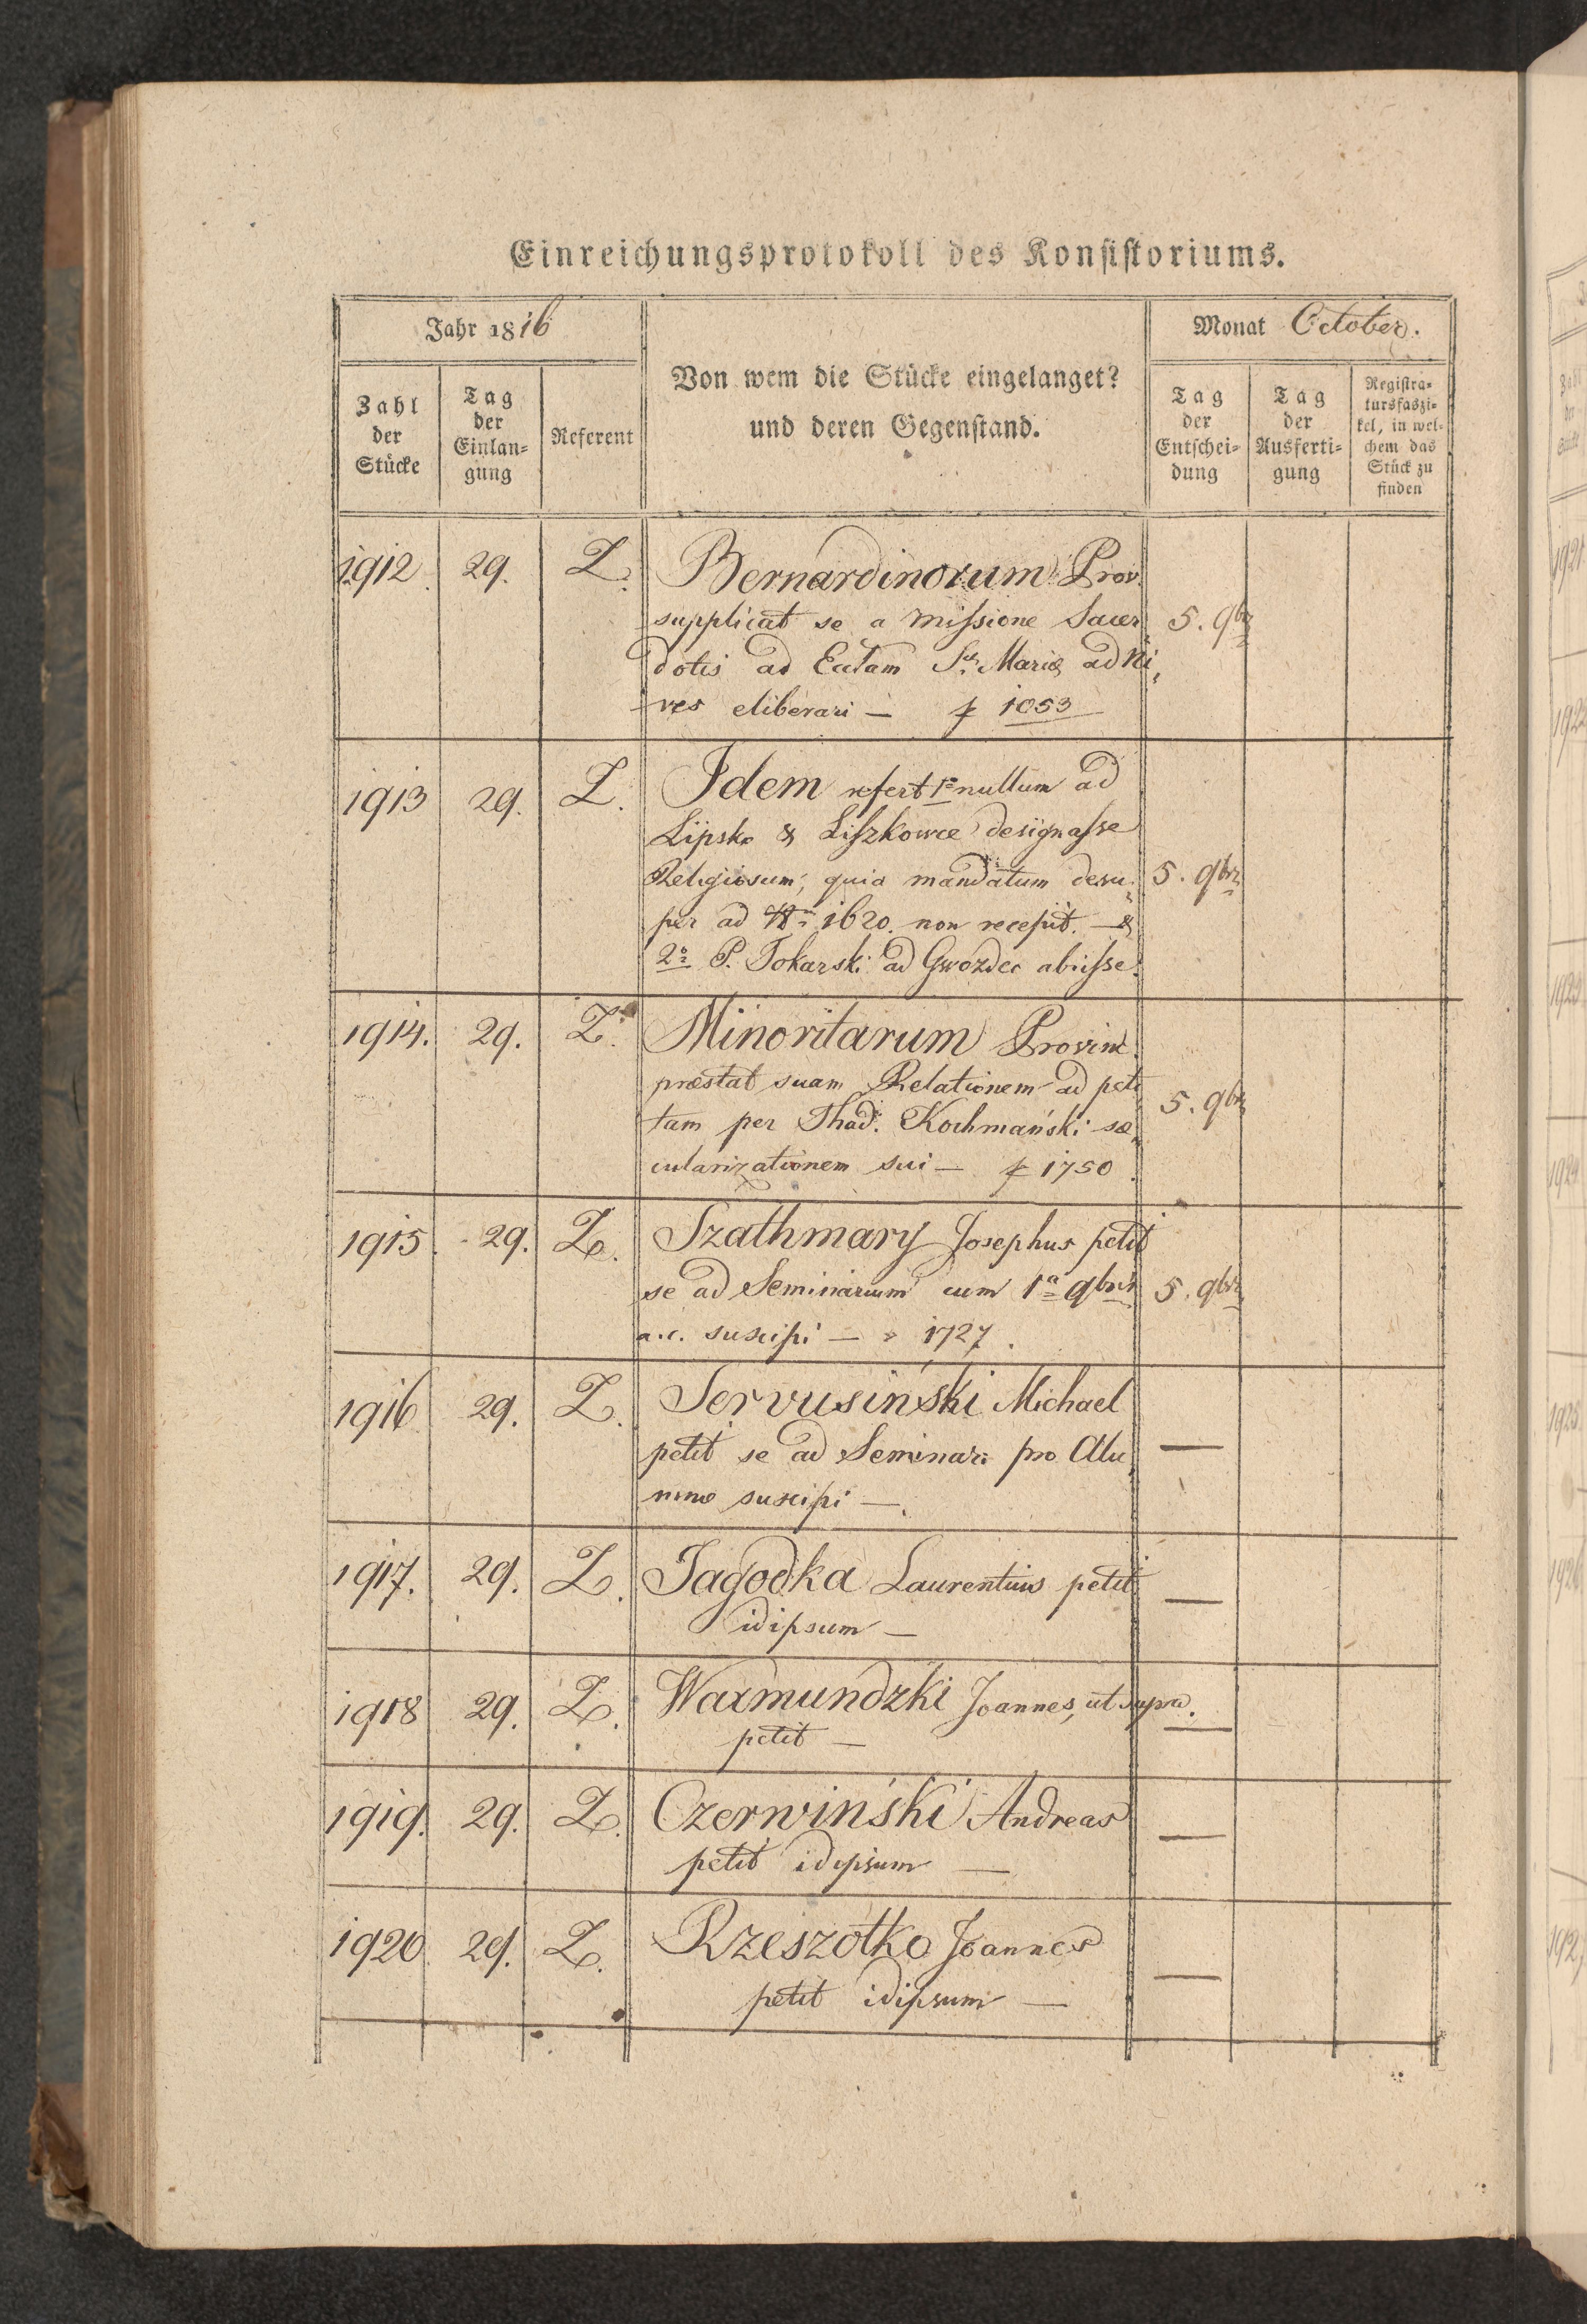 Einreichungsprotokoll des Konsistoriums.
Jahr 1816
Monat October.
Zahl der Stücke
Tag der Einlan=gung
Referent
Von wem die Stücke eingelanget?
und deren Gegenstand.
Tag der Entschei=dung
Tag der Ausferti=gung
Registra=tursfaszi=kel, in wel=chem das Stück zu finden
1912. 29. Z. Bernardinorum Prov.
supplicat se a missione Sacer
dotis ad Eccl̃am Sæ Mariæ ad Ni,
ves eliberari — 1053
5. 9br
1913 29. Z. Idem refert 1º nullum ad
Lipsko & Liszkowce designasse
Religiosum, quia mandatum desu,
per ad 1620. non recepit. — &
2º P. Tokarski ad Gwozdec abiisse.
5. 9br
1914. 29. Z. Minoritarum Provinc.
præstat suam Relationem ad peti
tam per Thad. Kochmański sæ,
cularizationem sui — 1750.
5. 9br
1915. 29. Z. Szathmary Josephus petit
se ad Seminarium cum 1a 9bris
a.c. suscipi — 1727.
5. 9br
1916 29. Z. Serwusiński Michael
petit se ad Seminari pro Alu,
mno suscipi —.
—
1917. 29. Z. Jagodka Laurentius petit
idipsum —
—
1918 29. Z. Waxmundzki Joannes, ut supra.
petit —
—
1919. 29. Z. Czerwiński Andreas
petit idipsum —
—
1920. 29. Z. Rzeszotko Joannes
petit idipsum —
—